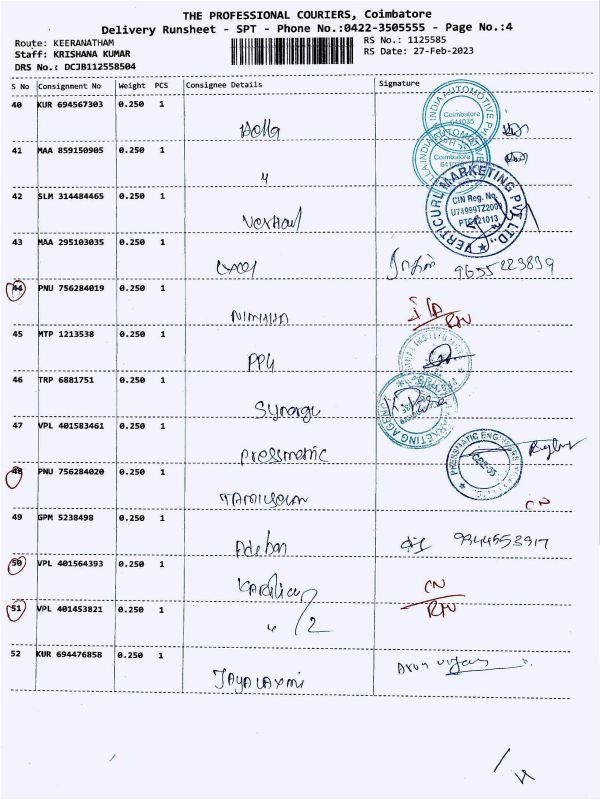 THE PROFESSIONAL COURIERS, Coimbatore
Delivery Runsheet - SPT - Phone No.:0422-3505555 - Page No.:4
Route: KEERANATHAM
RS No.: 1125585
Staff: KRISHANA KUMAR
RS Date: 27-Feb-2023
DRS No.: DCJB112558504
S No Consignment No Weight PCS Consignee Details Signature
40 KUR 694567303 0.250 1
Coimbatore
641035
41 MAA 859150905 0.250 1
Coimbatore
"
42 SLM 314484465 0.250 1
VERTICURL MARKETING PVT. LTD.,
CIN Reg. No.
U74999TZ2009
43 MAA 295103035 0.250 1
Excel 9655223839
44 PNU 756284019 0.250 1
RTN
45 MTP 1213538 0.250 1
PPG
46 TRP 6881751 0.250 1
Synergy
47 VPL 401583461 0.250 1
Pressmatic
48 PNU 756284020 0.250 1
CN
49 GPM 5238498 0.250 1
9344553917
50 VPL 401564393 0.250 1
CN
RTN
51 VPL 401453821 0.250 1
" /2
52 KUR 694476858 0.250 1
JAYALAXMI